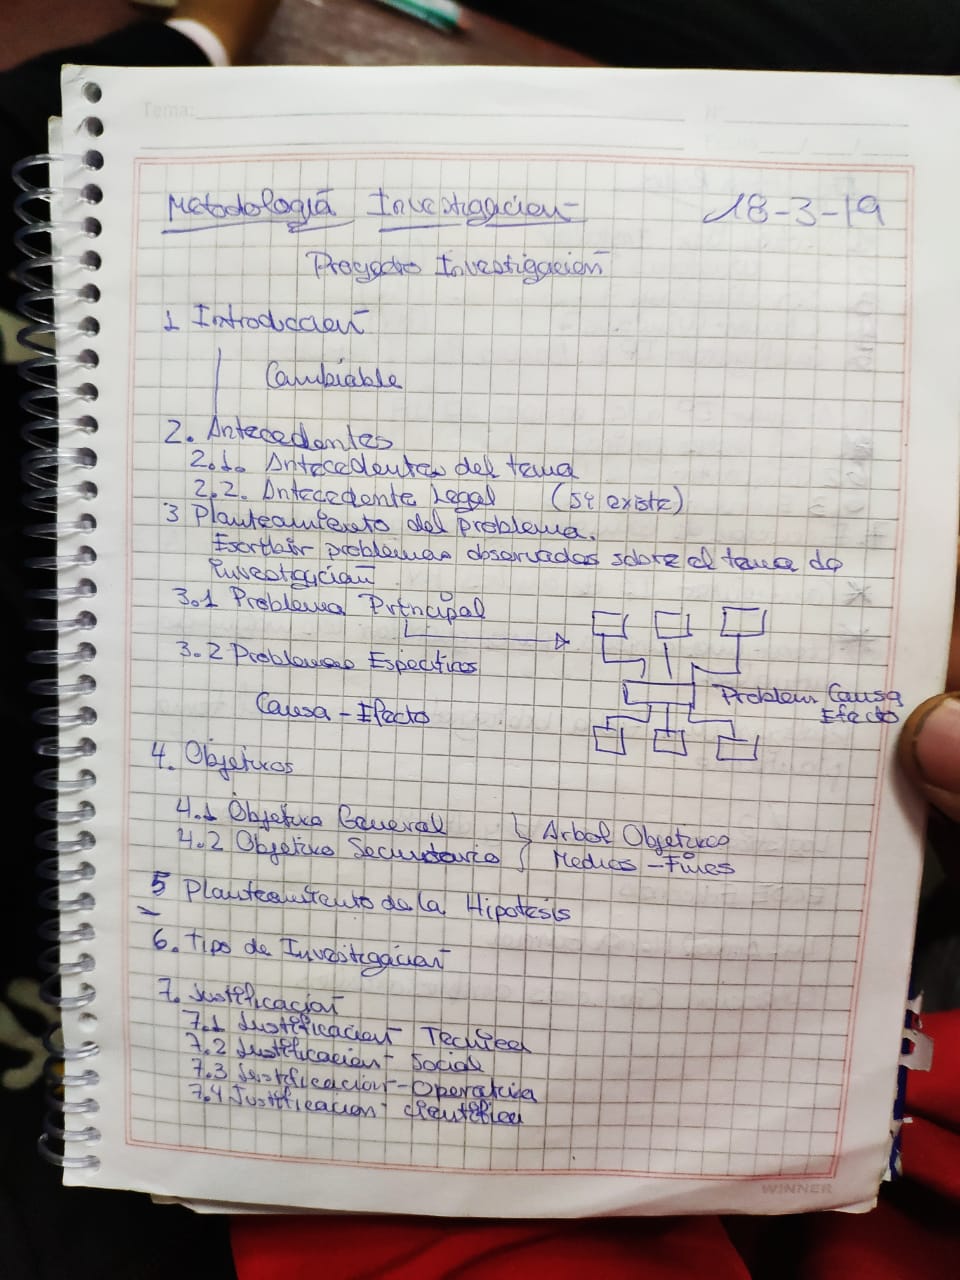 Tema:
Metodología Investigación 18-3-19
Proyecto Investigación
1 Introducción
Cambiable
2. Antecedentes
2.1. Antecedentes del tema
2.2. Antecedente Legal (Si existe)
3 Planteamiento del problema.
Escribir problemas observados sobre el tema de
Investigación
3.1 Problema Principal
3.2 Problemas Especificos
Problem Causa
Efecto
Causa - Efecto
4. Objetivos
4.1 Objetivo General
4.2 Objetivo Secundario
Arbol Objetivos
Medios - Fines
5 Planteamiento de la Hipotesis
6. Tipo de Investigación
7. Justificación
7.1 Justificación Tecnica
7.2 Justificación Social
7.3 Justificación Operativa
7.4 Justificación cientifica
WINNER